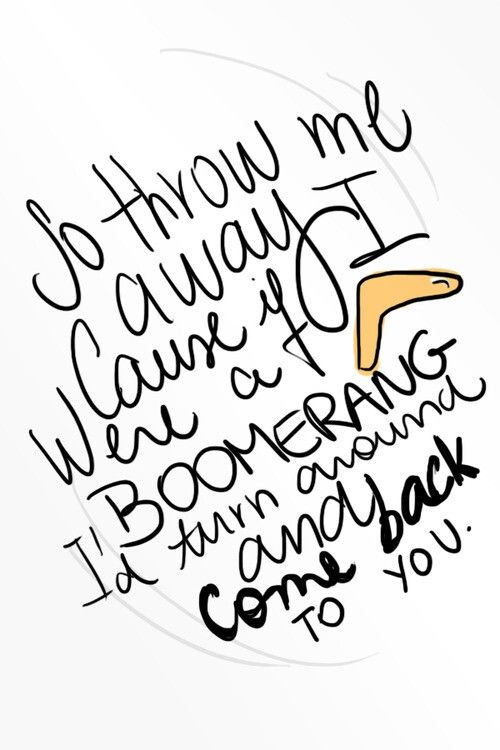 So throw me
away
Cause if I
Were a
BOOMERANG
I'd turn around
and
come back
TO YOU.